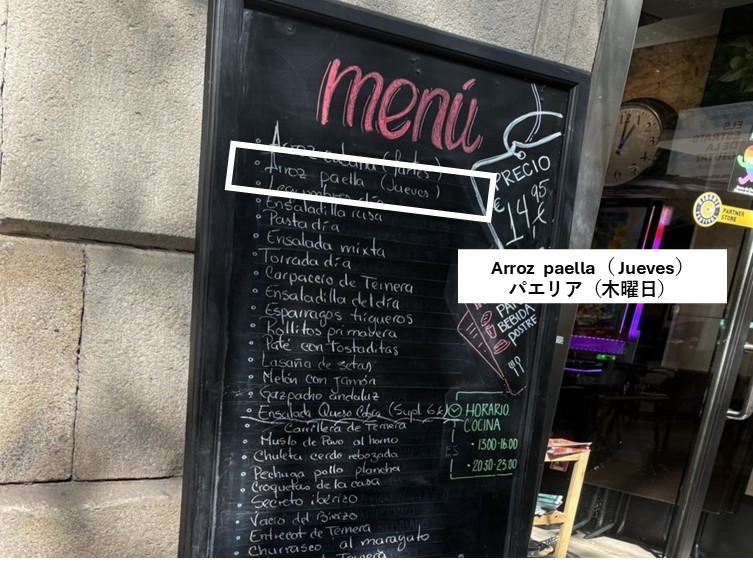 menú
• Arroz cubana (Martes)
• Arroz paella (Jueves)
• Legumbres día
• Ensaladilla rusa
• Pasta día
• Ensalada mixta
• Torrada día
• Carpaccio de Ternera
• Ensaladilla del día
• Esparragos trigueros
• Rollitos primavera
• Paté con Tostaditas
• Lasaña de setas
• Melón con Jamón
• Gazpacho andaluz
• Ensalada Queso Cabra (Supl. 6€)
• Carrillera de Ternera
• Muslo de Pavo al horno
• Chuleta cerdo rebozada
• Pechuga pollo plancha
• Croquetas de la casa
• Secreto ibérico
• Vacio del Bierzo
• Entrecot de Ternera
• Churrasco al maragato
Ternera
PRECIO
€ 14,95 €
PAN
BEBIDA
POSTRE
HORARIO
COCINA
• 13:00-16:00
• 20:30-23:00
Arroz paella（Jueves）
パエリア（木曜日）
ELS
DE LA
PARTNER
STORE